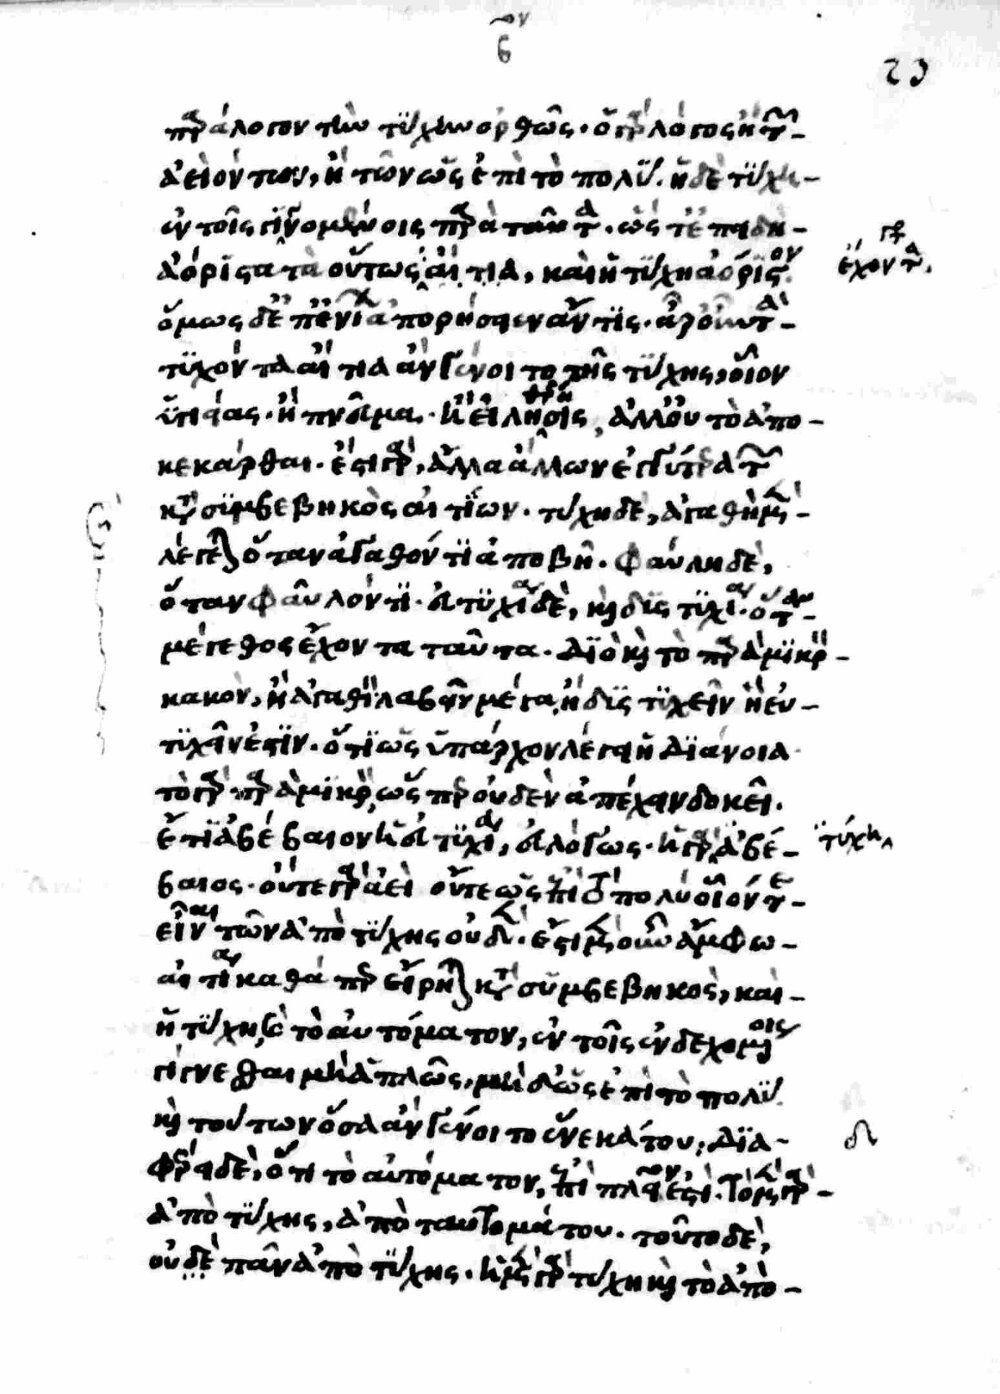 ον
β
23
παράλογον τὴν τύχην ὀρθῶς· ὁ γὰρ λόγος ἢ τῶν
ἀεὶ ὄντων, ἢ τῶν ὡς ἐπὶ τὸ πολύ. ἡ δὲ τύχη
ἐν τοῖς γινομένοις παρὰ ταῦτα. ὥστε ἐπειδὴ
ἀόριστα τὰ οὕτως αἴτια, καὶ ἡ τύχη ἀόριστον.
ὅμως δὲ ἐπ' ἐνίων ἀπορήσειεν ἄν τις. ἆρ' οὖν τὰ
τυχόντα αἴτια ἂν γένοιτο τῆς τύχης, οἷον
ὑγιείας. ἢ πνεῦμα. ἢ εἵλησις, ἀλλ' οὐ τὸ ἀπο-
κεκάρθαι. ἔστι γὰρ, ἄλλα ἄλλων ἐγγύτερα τῶν
κατὰ συμβεβηκὸς αἰτίων. τύχη δὲ, ἀγαθὴ μὲν
λέγεται ὅταν ἀγαθόν τι ἀποβῇ. φαύλη δὲ,
ὅταν φαῦλόν τι. εὐτυχία δὲ, καὶ δυστυχία. ὅταν
μέγεθος ἔχοντα ταῦτα. διὸ καὶ τὸ παρὰ μικρὸν
κακὸν, ἢ ἀγαθὸν λαβεῖν μέγα, ἢ δυστυχεῖν ἢ εὐ-
τυχεῖν ἐστίν. ὅτι ὡς ὑπάρχον λέγει ἡ διάνοια.
τὸ γὰρ παρὰ μικρὸν, ὥσπερ οὐδὲν ἀπέχειν δοκεῖ.
ἔτι ἀβέβαιον ἡ εὐτυχία, εὐλόγως. ἡ γὰρ ἀβέ-
βαιος. οὔτε γὰρ ἀεὶ οὔτε ὡς ἐπὶ τὸ πολὺ οἷόν τε
εἶναι τῶν ἀπὸ τύχης οὐδέν. ἔστι μὲν οὖν ἄμφω
αἴτια καθάπερ εἴρηται κατὰ συμβεβηκὸς, καὶ
ἡ τύχη, καὶ τὸ αὐτόματον, ἐν τοῖς ἐνδεχομένοις
γίνεσθαι μὴ ἁπλῶς, μηδ' ὡς ἐπὶ τὸ πολύ.
καὶ τούτων ὅσα ἂν γένοιτο ἕνεκά του, δια-
φέρει δὲ, ὅτι τὸ αὐτόματον, ἐπὶ πλεῖόν ἐστι. τὸ μὲν γὰρ
ἀπὸ τύχης, ἀπὸ ταυτομάτου. τοῦτο δὲ,
οὐδὲ πᾶν ἀπὸ τύχης. ἡ μὲν γὰρ τύχη καὶ τὸ ἀπὸ
γρ
ἔχοντα.
τύχη